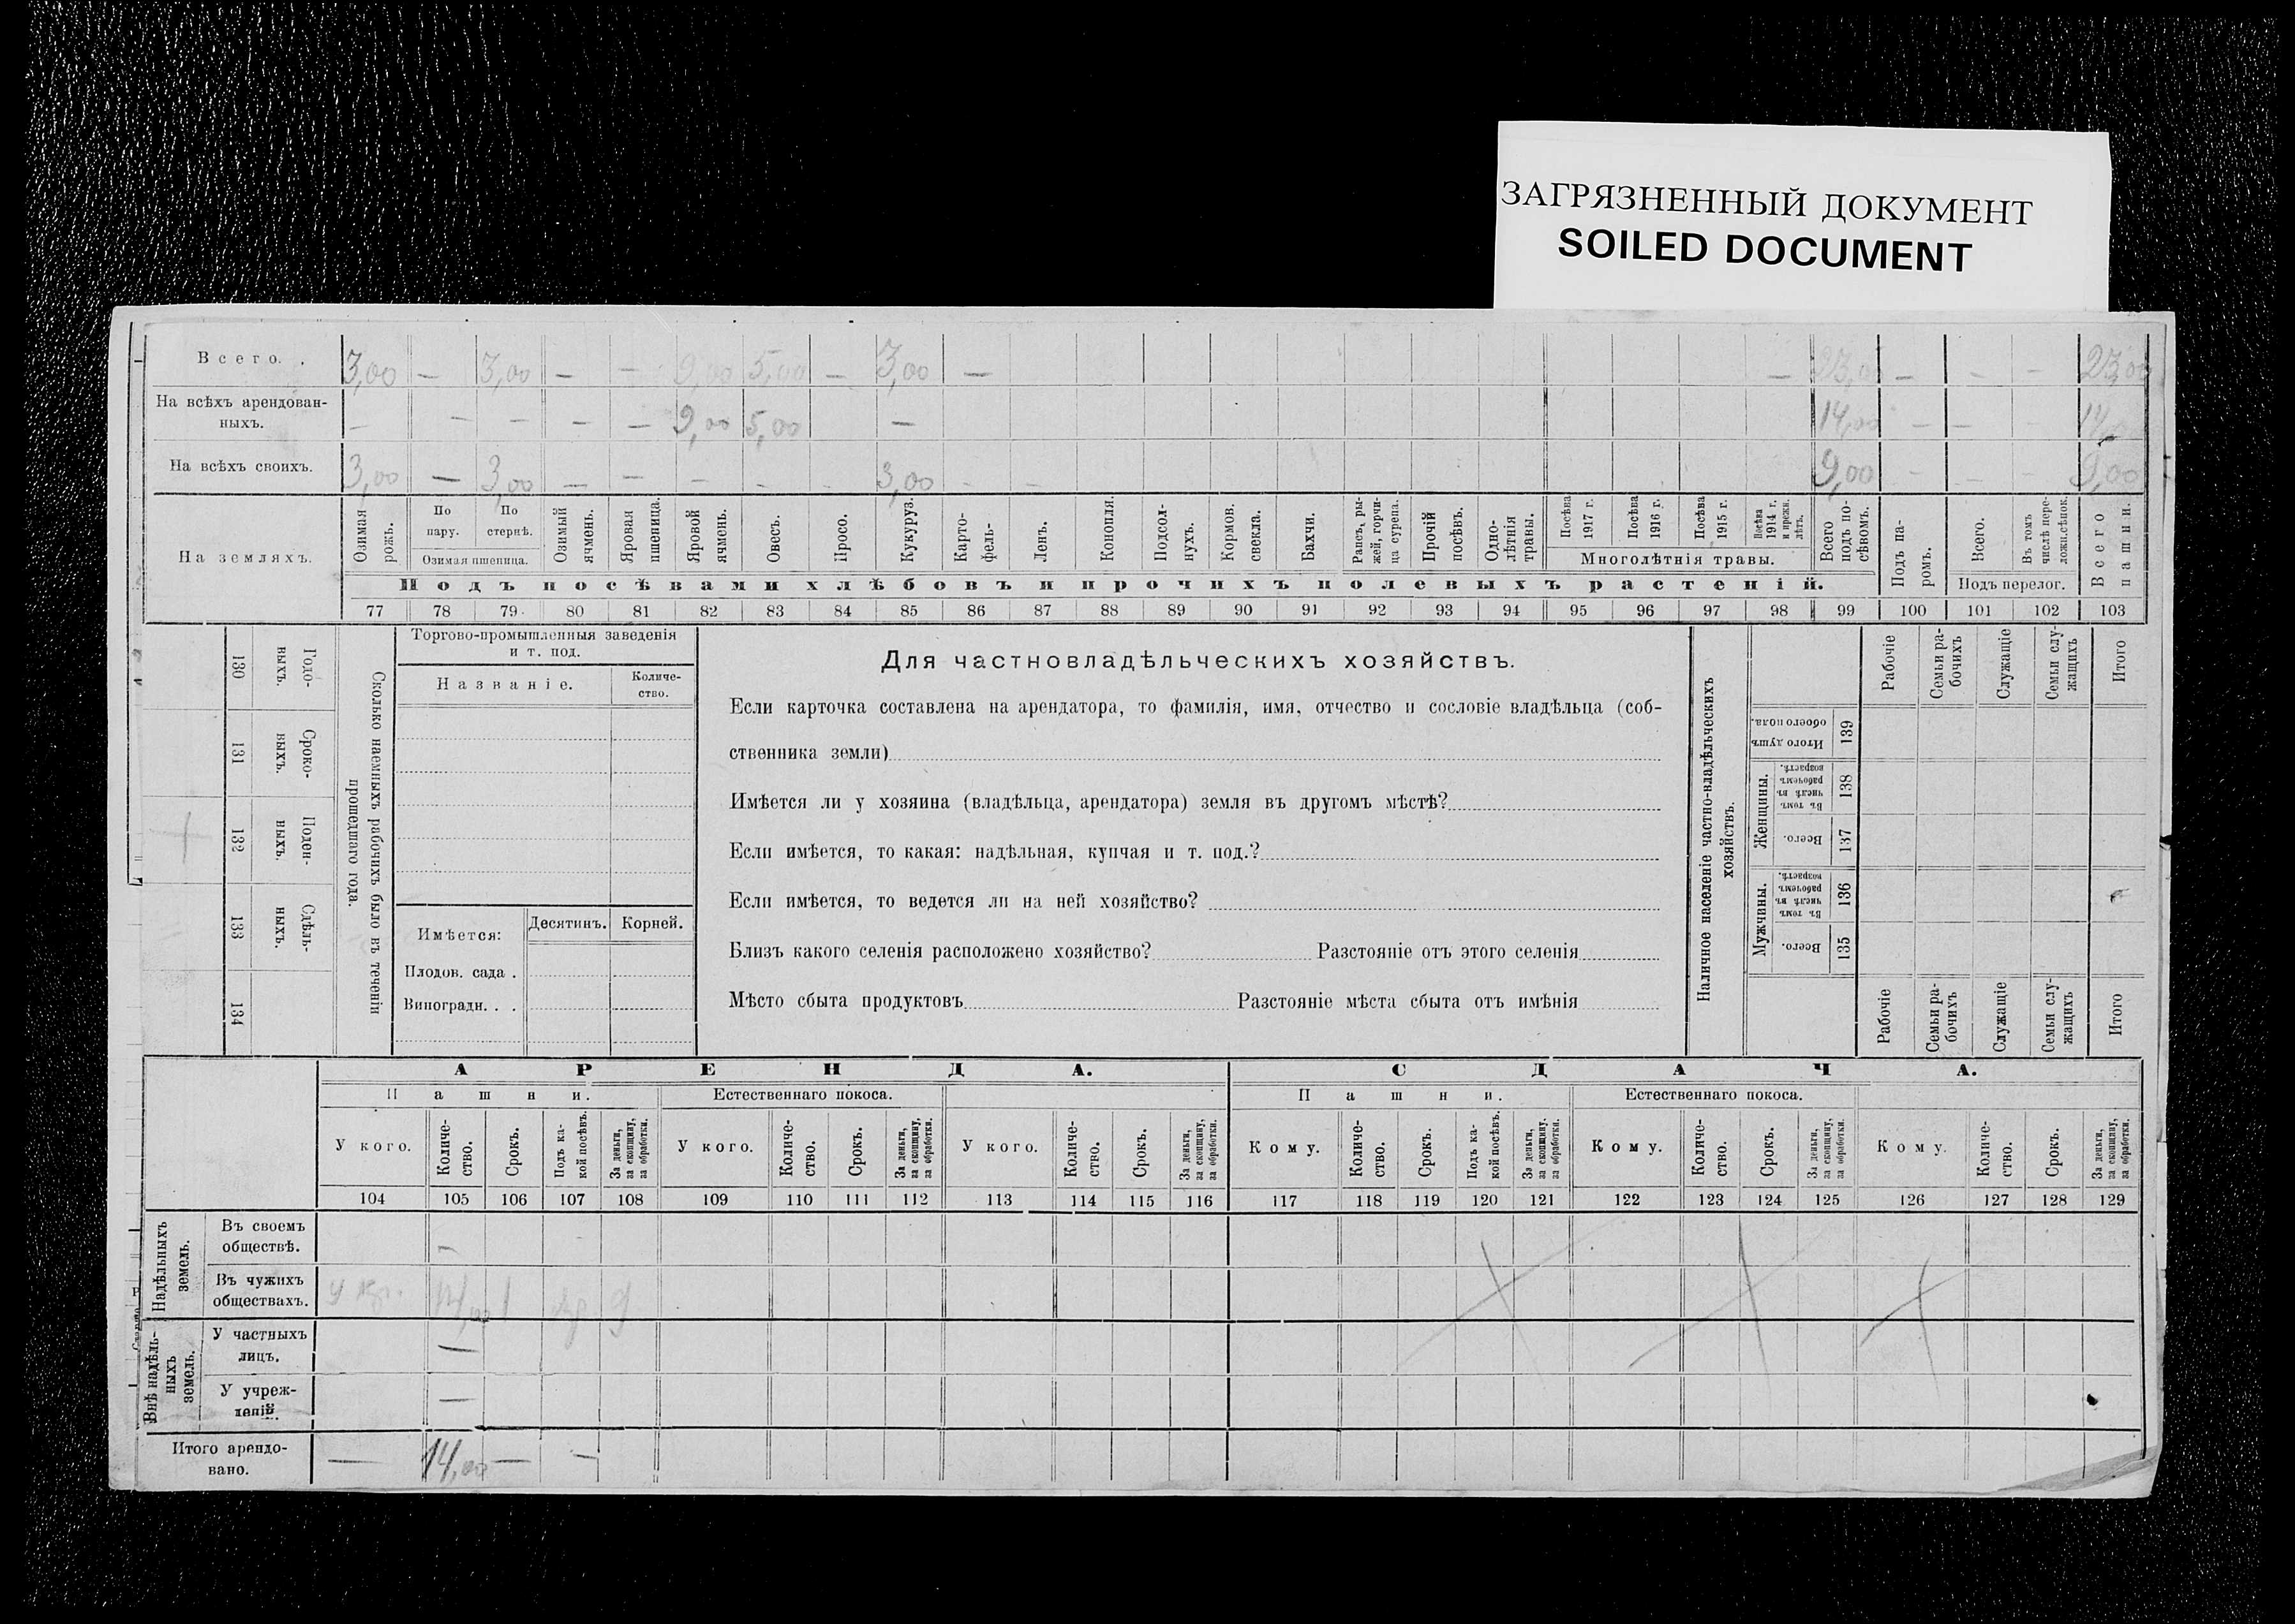 ЗАГРЯЗНЕННЫЙ ДОКУМЕНТ
SOILED DOCUMENT
Всего. . 3,00 — 3,00 — — 9,00 5,00 — 3,00 — — 23,00 — — — 23,00
На всѣхъ арендован-
ныхъ. — — — — — 9,00 5,00 — 14,00 — — — 14,00
На всѣхъ своихъ. 3,00 — 3,00 — — — - - 3,00 - - 9,00 - - - 9,00
На земляхъ.
Озимая рожь.
По пару.
По стернѣ.
Озимая пшеница.
Озимый ячмень.
Яровая пшеница.
Яровой ячмень.
Овесъ.
Просо.
Кукуруз.
Карто-
фель-
Ленъ.
Конопля.
Подсол-
нухъ.
Кормов.
свекла.
Бахчи.
Рапсъ, ры-
жей, горчи-
ца сурепа.
Прочій
посѣвъ.
Одно-
лѣтнія
травы.
Посѣва
1917 г.
Посѣва
1916 г.
Посѣва
1915 г.
Посѣва
1914 г.
и прежн.
лѣтъ.
Многолѣтнія травы.
Всего
подъ по-
сѣвомъ.
Подъ па-
ромъ.
Всего.
Въ томъ
числѣ пере-
ложн.сѣнок.
Подъ перелог.
Всего
пашни.
Подъ посѣвами хлѣбовъ и прочихъ полевыхъ растеній.
77 78 79 80 81 82 83 84 85 86 87 88 89 90 91 92 93 94 95 96 97 98 99 100 101 102 103
130 Годо-
выхъ.
131 Сроко-
выхъ.
132 Поден-
ныхъ.
133 Сдѣль-
ныхъ.
134
Сколько наемныхъ рабочихъ было въ теченіи
прошедшаго года.
Торгово-промышленныя заведенія
и т. под.
Названіе.
Количе-
ство.
Имѣется: Десятинъ. Корней.
Плодов. сада .
Виноградн. . .
Для частновладѣльческихъ хозяйствъ.
Если карточка составлена на арендатора, то фамилія, имя, отчество и сословіе владѣльца (соб-
ственника земли)
Имѣется ли у хозяина (владѣльца, арендатора) земля въ другомъ мѣстѣ?
Если имѣется, то какая: надѣльная, купчая и т. под.?
Если имѣется, то ведется ли на ней хозяйство?
Близъ какого селенія расположено хозяйство? Разстояніе отъ этого селенія
Мѣсто сбыта продуктовъ Разстояніе мѣста сбыта отъ имѣнія
Наличное населеніе частно-владѣльческихъ
хозяйствъ.
Рабочіе
Семьи ра-
бочихъ
Служащіе
Семьи слу-
жащихъ
Итого
Итого душъ
обоего пола. 139
Женщины.
Въ томъ
числѣ въ
рабочемъ
возрастѣ. 138
Всего. 137
Мужчины.
Въ томъ
числѣ въ
рабочемъ
возрастѣ. 136
Всего. 135
Рабочіе
Семьи ра-
бочихъ
Служащіе
Семьи слу-
жащихъ
Итого
АРЕНДА. СДАЧА.
Пашни. Естественнаго покоса. Пашни. Естественнаго покоса.
У кого.
Количе-
ство.
Срокъ.
Подъ ка-
кой посѣвъ.
За деньги,
за скопщину,
за обработки.
У кого.
Количе-
ство.
Срокъ.
За деньги,
за скопщину,
за обработки.
У кого.
Количе-
ство.
Срокъ.
За деньги,
за скопщину,
за обработки.
Кому.
Количе-
ство.
Срокъ.
Подъ ка-
кой посѣвъ.
За деньги,
за скопщину,
за обработки.
Кому.
Количе-
ство.
Срокъ.
За деньги,
за скопщину,
за обработки.
Кому.
Количе-
ство.
Срокъ.
За деньги,
за скопщину,
за обработки.
104 105 106 107 108 109 110 111 112 113 114 115 116 117 118 119 120 121 122 123 124 125 126 127 128 129
Надѣльныхъ
земель.
Въ своемъ
обществѣ. —
Въ чужихъ
обществахъ. у 14,00 1
Внѣ надѣль-
ныхъ
земель.
У частныхъ
лицъ. —
У учреж-
деній. —
Итого арендо-
вано. — 14,00 — —